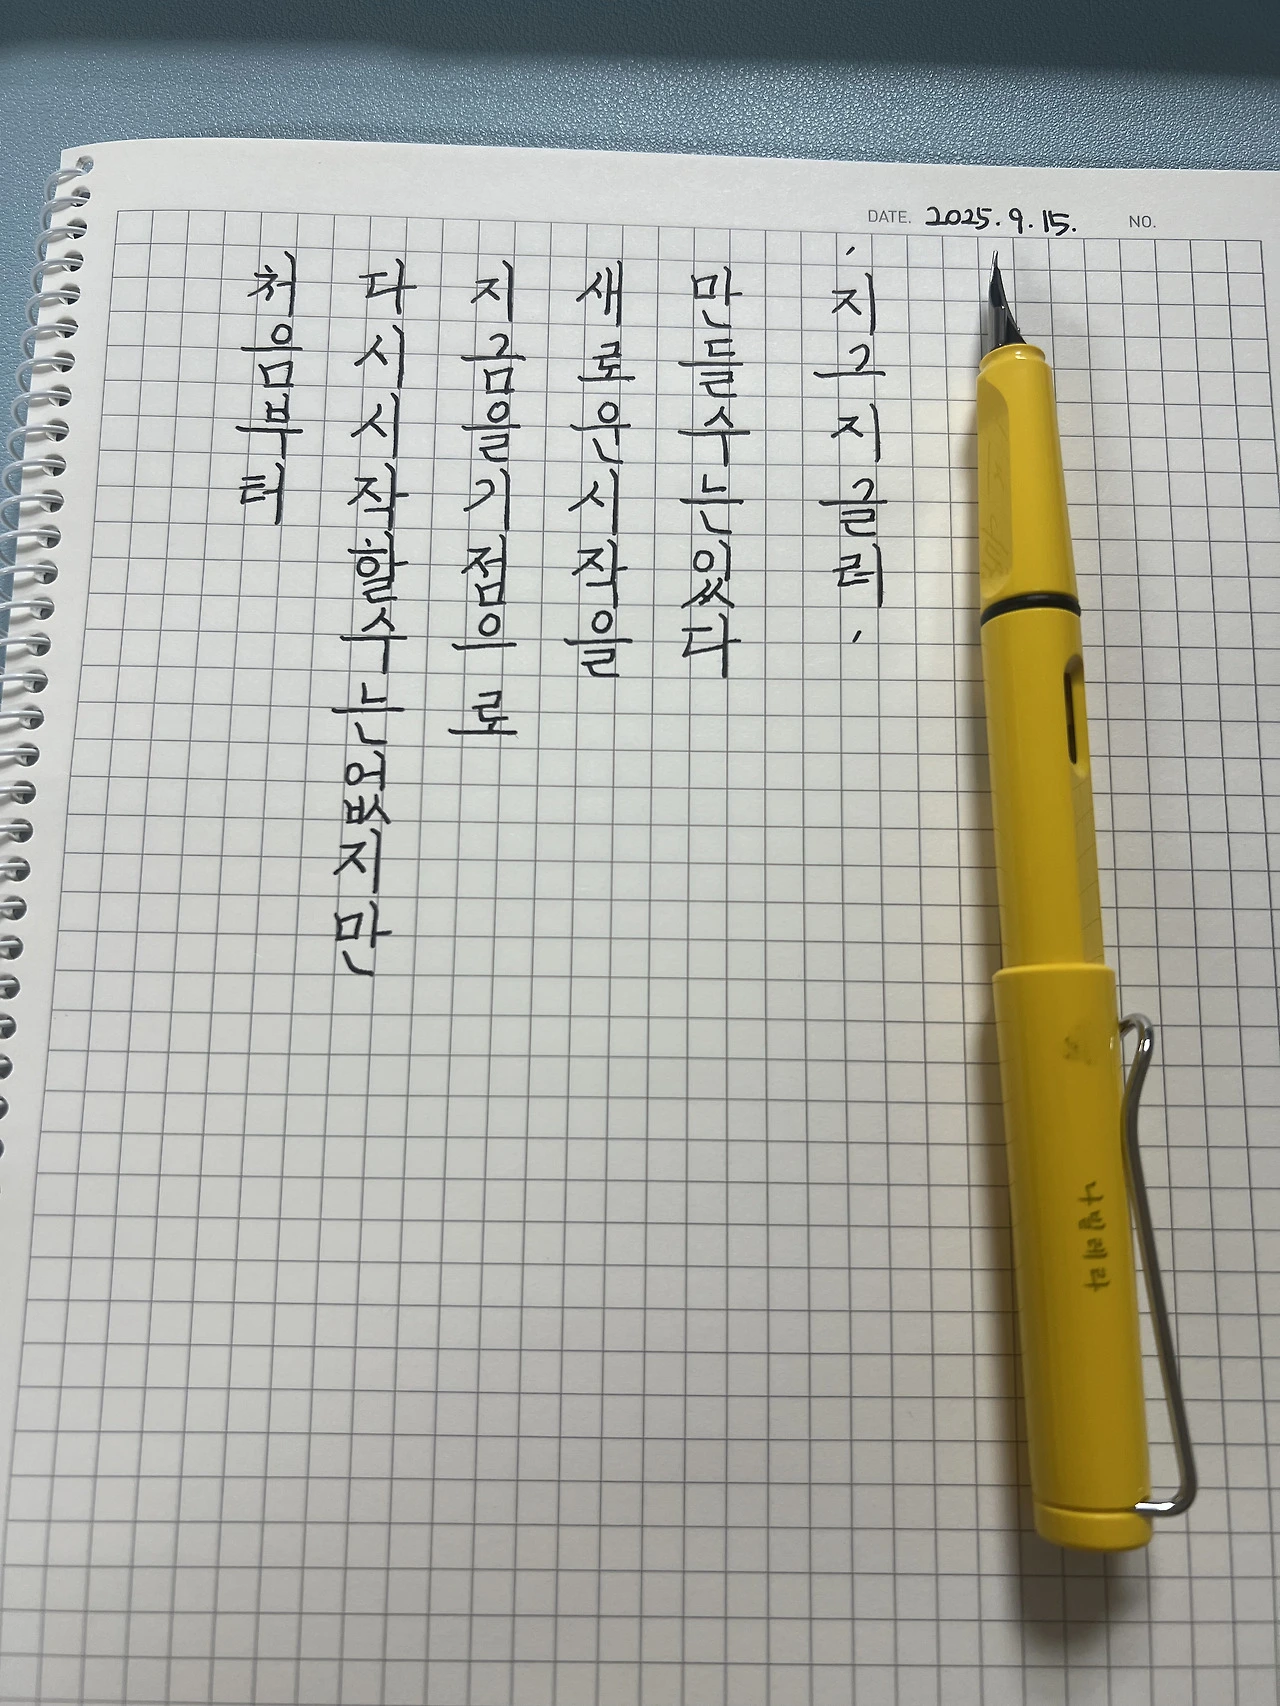 DATE. 2025. 9. 15. NO.
처음부터
다시시작할수는없지만
지금을기점으로
새로운시작을
만들수는있다
'지그지글러'